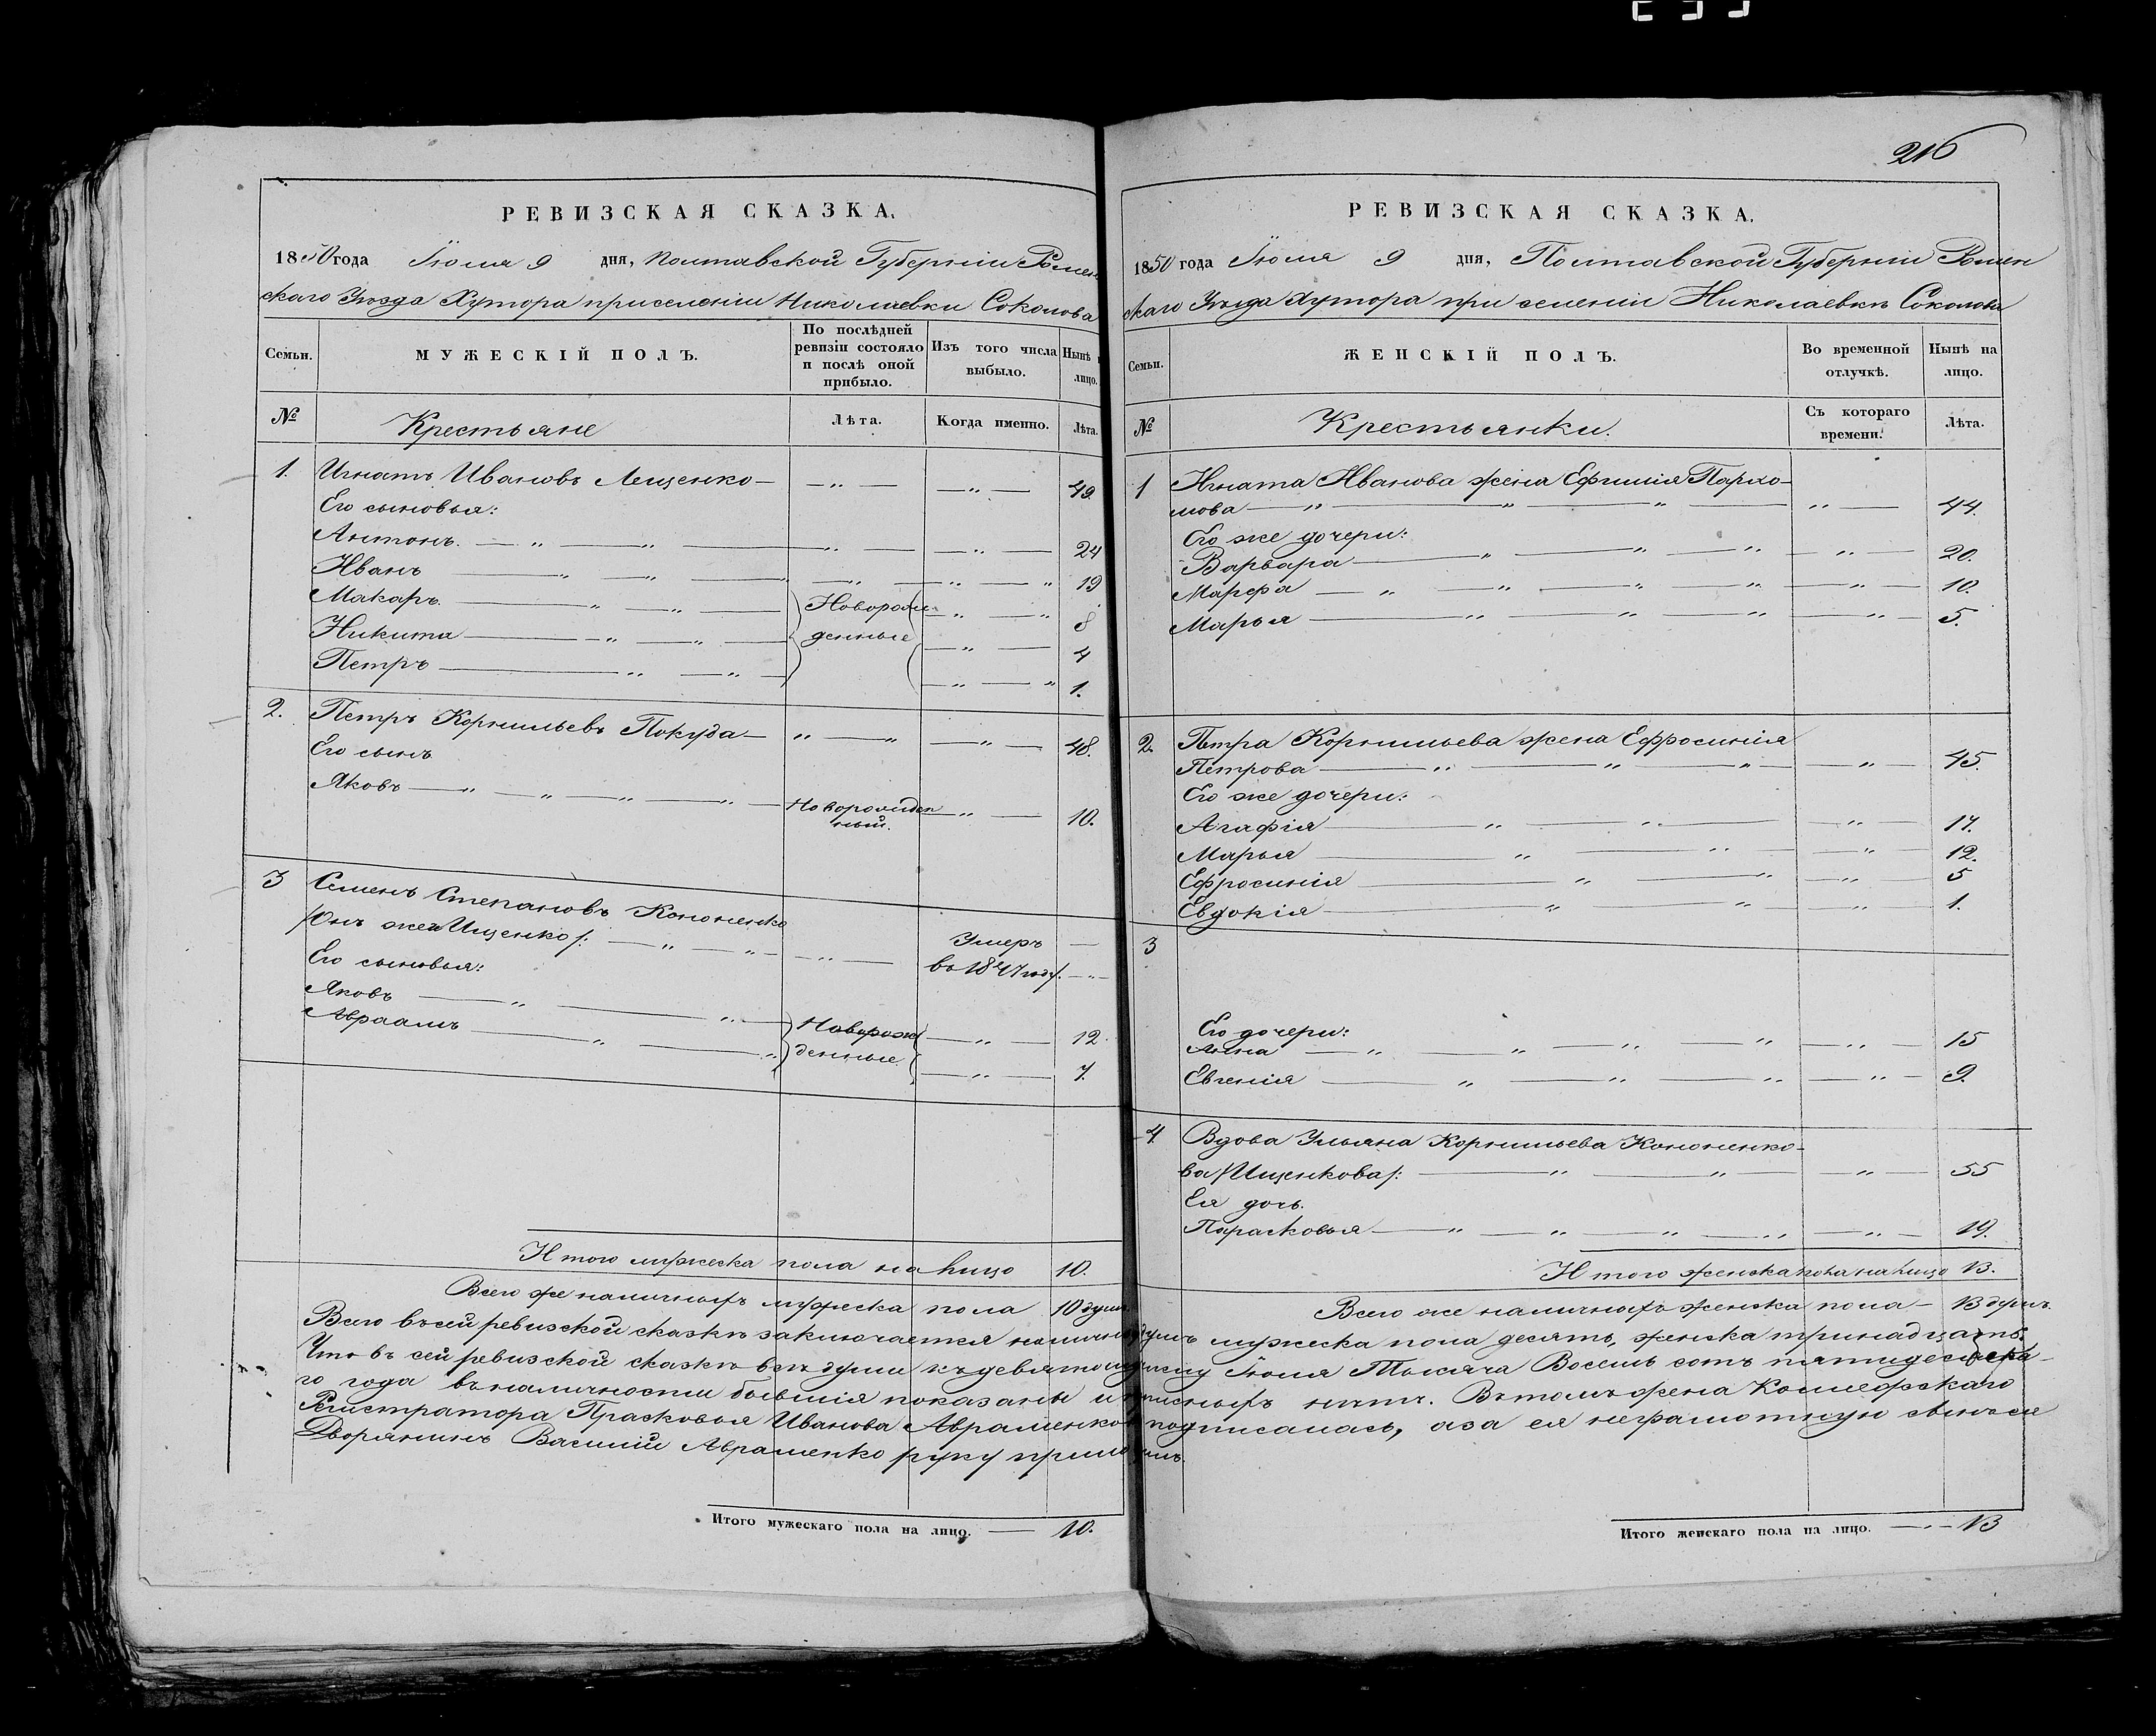 216
РЕВИЗСКАЯ СКАЗКА.
1850 года Іюля 9 дня, Полтавской Губерніи Ромен
скаго Уѣзда Хутора при селеніи Николаевки Соколова
Семьи. МУЖЕСКІЙ ПОЛЪ. По послѣдней ревизіи состояло и послѣ оной прибыло. Изъ того числа выбыло. Нынѣ лицо.
№ Крестьяне Лѣта. Когда именно. Лѣта.
1. Игнатъ Ивановъ Лещенко — 49
Его сыновья:
Антонъ. 24
Иванъ 19
Макаръ. Новорож 8
Никита денные 4
Петръ 1.
2. Петръ Корнильевъ Покуда 48.
Его сынъ
Яковъ Новорожден
ный. 10.
3 Семенъ Степановъ Кононенко
/Онъ же Ищенко/: Умеръ
въ 1847 году.
Его сыновья:
Яковъ Новорож 12.
Авраамъ денные. 7.
Итого мужеска пола на лицо 10.
Всего же наличныхъ мужеска пола 10 душъ.
РЕВИЗСКАЯ СКАЗКА.
1850 года Іюля 9 дня, Полтавской Губерніи Ромен
скаго Уѣзда Хутора при селеніи Николаевкѣ Соколова
Семьи. ЖЕНСКІЙ ПОЛЪ. Во временной отлучкѣ. Нынѣ на лицо.
№ Крестьянки. Съ котораго времени. Лѣта.
1 Игната Иванова жена Ефимія Пархо-
мова 44.
Его же дочери:
Варвара 20.
Марфа 10.
Марья 5.
2. Петра Корнильева жена Ефросинія
Петрова 45.
Его же дочери:
Агафія 17.
Марья 12.
Ефросинія 5
Евдокія 1.
3
Его дочери:
Анна 15
Евгенія 9.
4. Вдова Ульяна Корнильева Кононенко-
ва /Ищенкова/: 55
Ея дочь.
Парасковья 19.
Итого женска пола на лицо 13.
Всего же наличныхъ женска пола — 13 душъ.
Всего въ сей ревизской сказкѣ заключается наличныхъ душъ мужеска пола десять, женска тринадцать.
Что въ сей ревизской сказкѣ всѣ души къ девятому числу Іюля Тысяча Восемь сотъ пятидесята-
го года въ наличности бывшія показаны и прописныхъ нѣтъ. Въ томъ жена Коллежскаго
Регистратора Прасковья Иванова Авраменкова подписалась, а за ея неграмотную сынъ ея
Дворянинъ Василій Авраменко руку приложилъ.
Итого мужескаго пола на лицо. — 10.
Итого женскаго пола на лицо. — 13